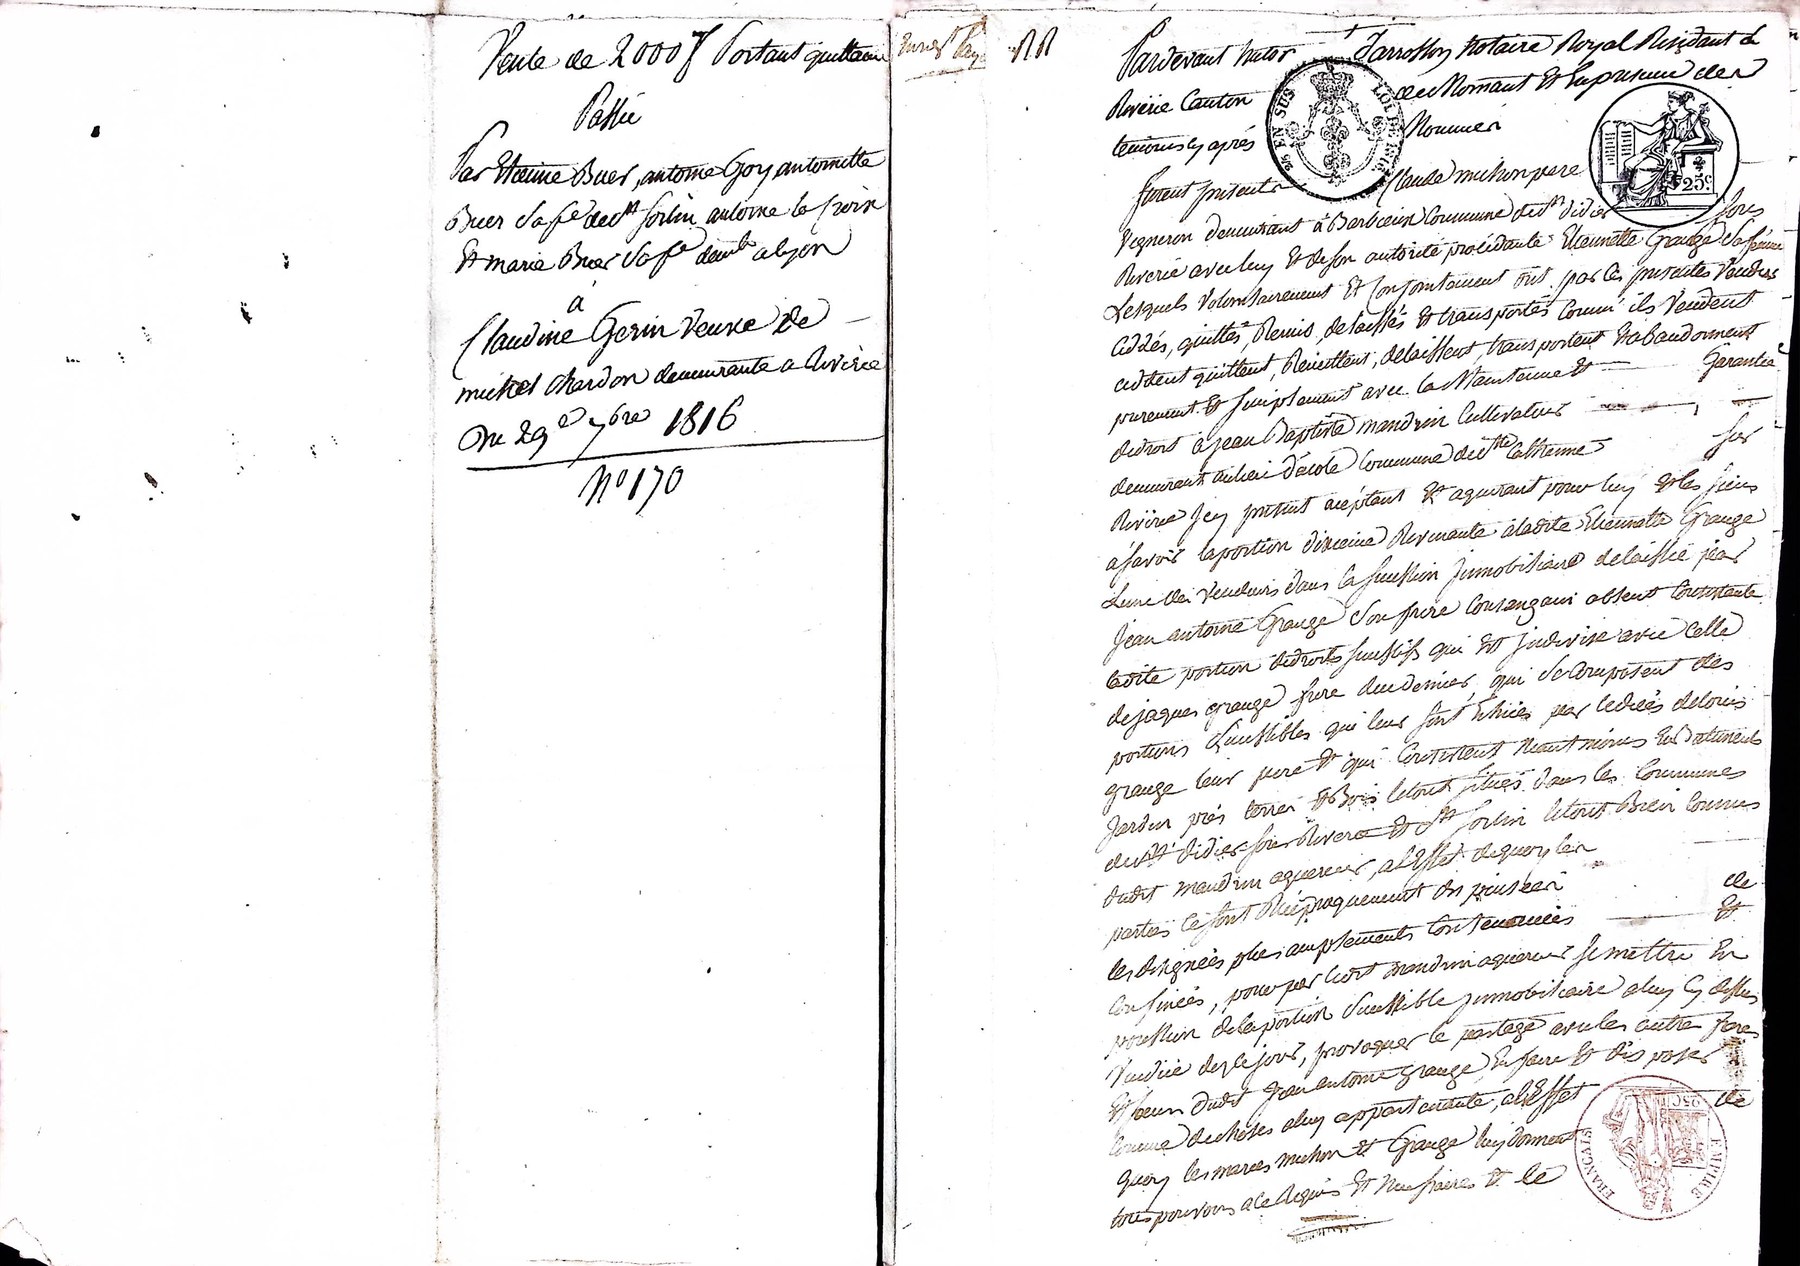 Vente de 2000 f Portant quittance
Passée
Par Etienne Buer, antoine Goy antoinette
Buer sa fe de st Sorlin antoine la Croix
Et marie Buer sa fe demt a lyon
à
Claudine Gerin Veuve de
michel chardon demeurante a Riverie
Du 29e 7bre 1816
No 170
Pardevant Notor Jarrosson Notaire Royal Résidant à
Riverie Canton de Mornant Et En présence des
temoins cy après Nommés
25 EN SUS LOI DE 1816
25c
furent presents Claude michon pere
Vigneron demeurant à Barbieux Commune de st didier sous
Riverie avec luy Et de son autorité procédante Etiennette Grange sa femme
Lesquels Volontairement Et Conjointement ont par ces presentes Vendus
cédés, quittés, Remis, delaissés et transportés Comme ils Vendent
cèdent quittent, Remettent, delaissent, transportent et abandonnent
purement Et simplement avec la Maintenue Et Garantie
de droit à jean Baptiste mandrin Cultivateur
demeurant au lieu d'école Commune de ste Catherine sur
Riverie icy present acéptant Et aquerant pour luy Et les siens
à savoir la portion divisive Revenante à ladite Etiennette Grange
L'une des Vendeurs dans la succession immobiliaire delaissée par
Jean antoine Grange son frere Consanguin absent Consistante
ladite portion de droits successifs qui Est indivise avec Celle
de jaques grange frere du dernier, qui se Composent des
portions successibles qui leur sont Echües par le décès de louis
grange leur pere Et qui Consistent Neantmoins En Batiments
Jardin prés terres Et Bois le tout situés dans les Communes
de st didier sous Riverie Et st Sorlin le tout Bien Connus
dudit mandrin aquereur, a l'Effet de quoy les
parties Ce sont Réciproquement dispensées de
les désignées plus amplements Contenances Et
Confinées, pour par ledit mandrin aquereur se mettre En
possession de la portion successible immobiliaire a luy Cy dessus
Vendüe dez ce jour, provoquer le partage avec les autre freres
Et soeur dudit Jean antoine Grange, En faire Et disposer
Comme de choses a luy appartenante, a l'Effet de
quoy les mariés michon Et Grange luy donnent
tous pouvoirs a ce Requis Et Necessaires Et le
EMPIRE FRANÇAIS
25C